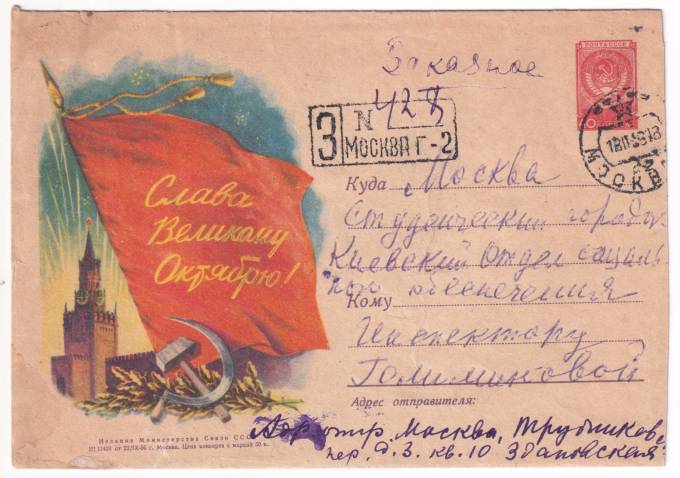 Заказное
ПОЧТА СССР
З
N 427
МОСКВА Г-2
МОСКВА
Слава
Великому
Октябрю!
Куда Москва
Студенческий городо-
Киевский Отдел социаль
ного обеспечения
Кому
Инспектору
Голишиковой
Адрес отправителя:
Адр отпр. Москва, Трубников
пер. д. 3. кв. 10 Здановская
Издание Министерства Связи ССС
от 22/IX-56 г. Москва. Цена конверта с маркой 50 к.